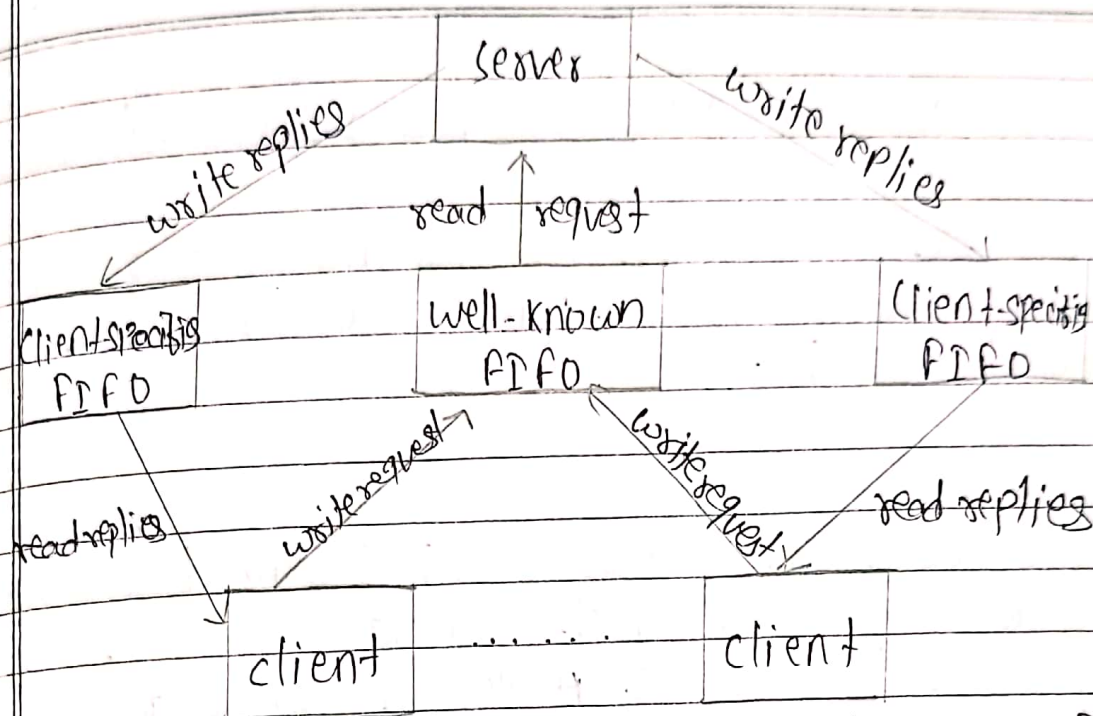 server
write replies
write replies
read request
client-specific
FIFO
well-known
FIFO
client-specific
FIFO
write request
write request
read replies
read replies
client
.......
client